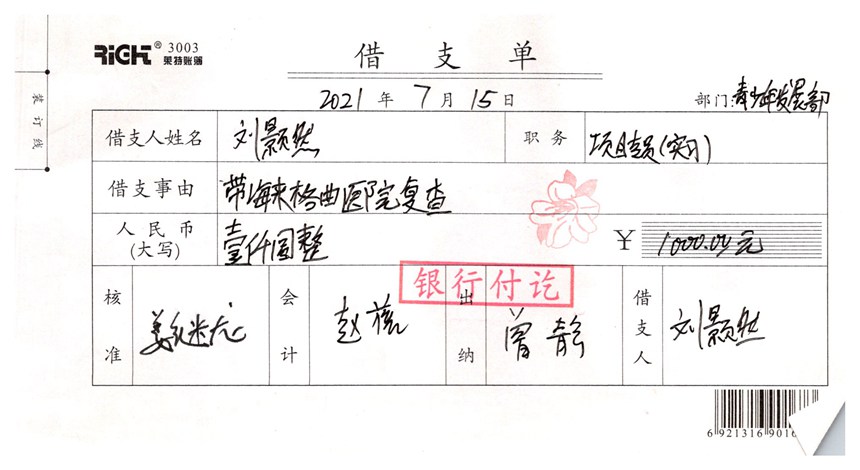 RiGHT® 3003
莱特账簿
借支单
2021年7月15日
部门:青少年发展部
装订线
借支人姓名 刘颢然 职务 项目专员(实习)
借支事由 带海来格曲医院复查
人民币(大写) 壹仟圆整 ¥ 1000.00元
银行付讫
核准 会计 赵 出纳 曾静 借支人 刘颢然
6 921316 9016